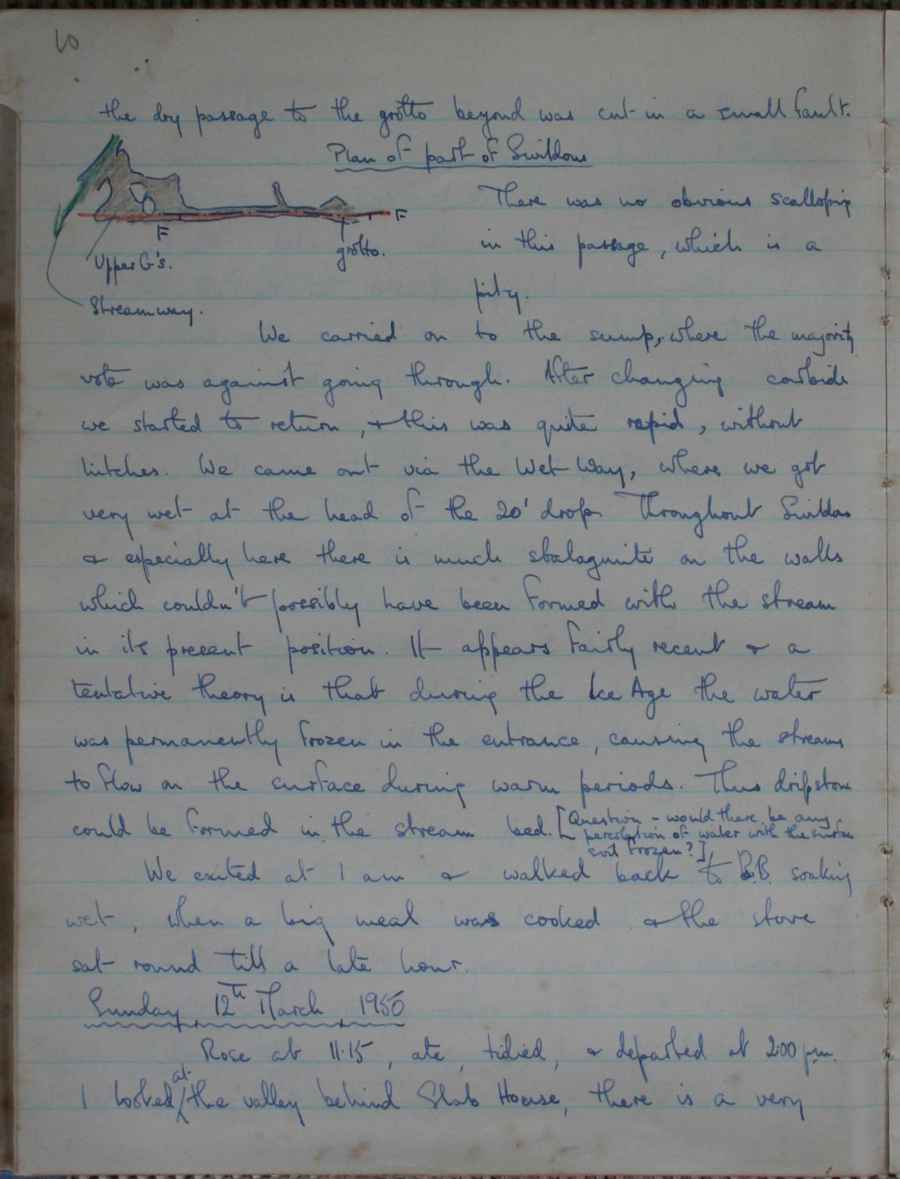 10
the dry passage to the grotto beyond was cut in a small fault.
Plan of part of Swildons
There was no obvious scalloping
F
F
in this passage, which is a
grotto.
Upper G's.
pity.
Streamway.
We carried on to the sump, where the majority
vote was against going through. After changing carbide
we started to return, & this was quite rapid, without
hitches. We came out via the Wet Way, where we got
very wet at the head of the 20' drop. Throughout Swildons
& especially here there is much stalagmite on the walls
which couldn't possibly have been formed with the stream
in its present position. It appears fairly recent & a
tentative theory is that during the Ice Age the water
was permanently frozen in the entrance, causing the stream
to flow on the surface during warm periods. Thus dripstone
could be formed in the stream bed. [Question - would there be any
percolation of water with the surface
soil frozen?]
We exited at 1 am & walked back to B.B. soaking
wet, when a big meal was cooked & the stove
sat round till a late hour.
Sunday 12th March 1950
Rose at 11.15, ate, tidied, & departed at 2.00 pm.
I looked at the valley behind Slab House, there is a very